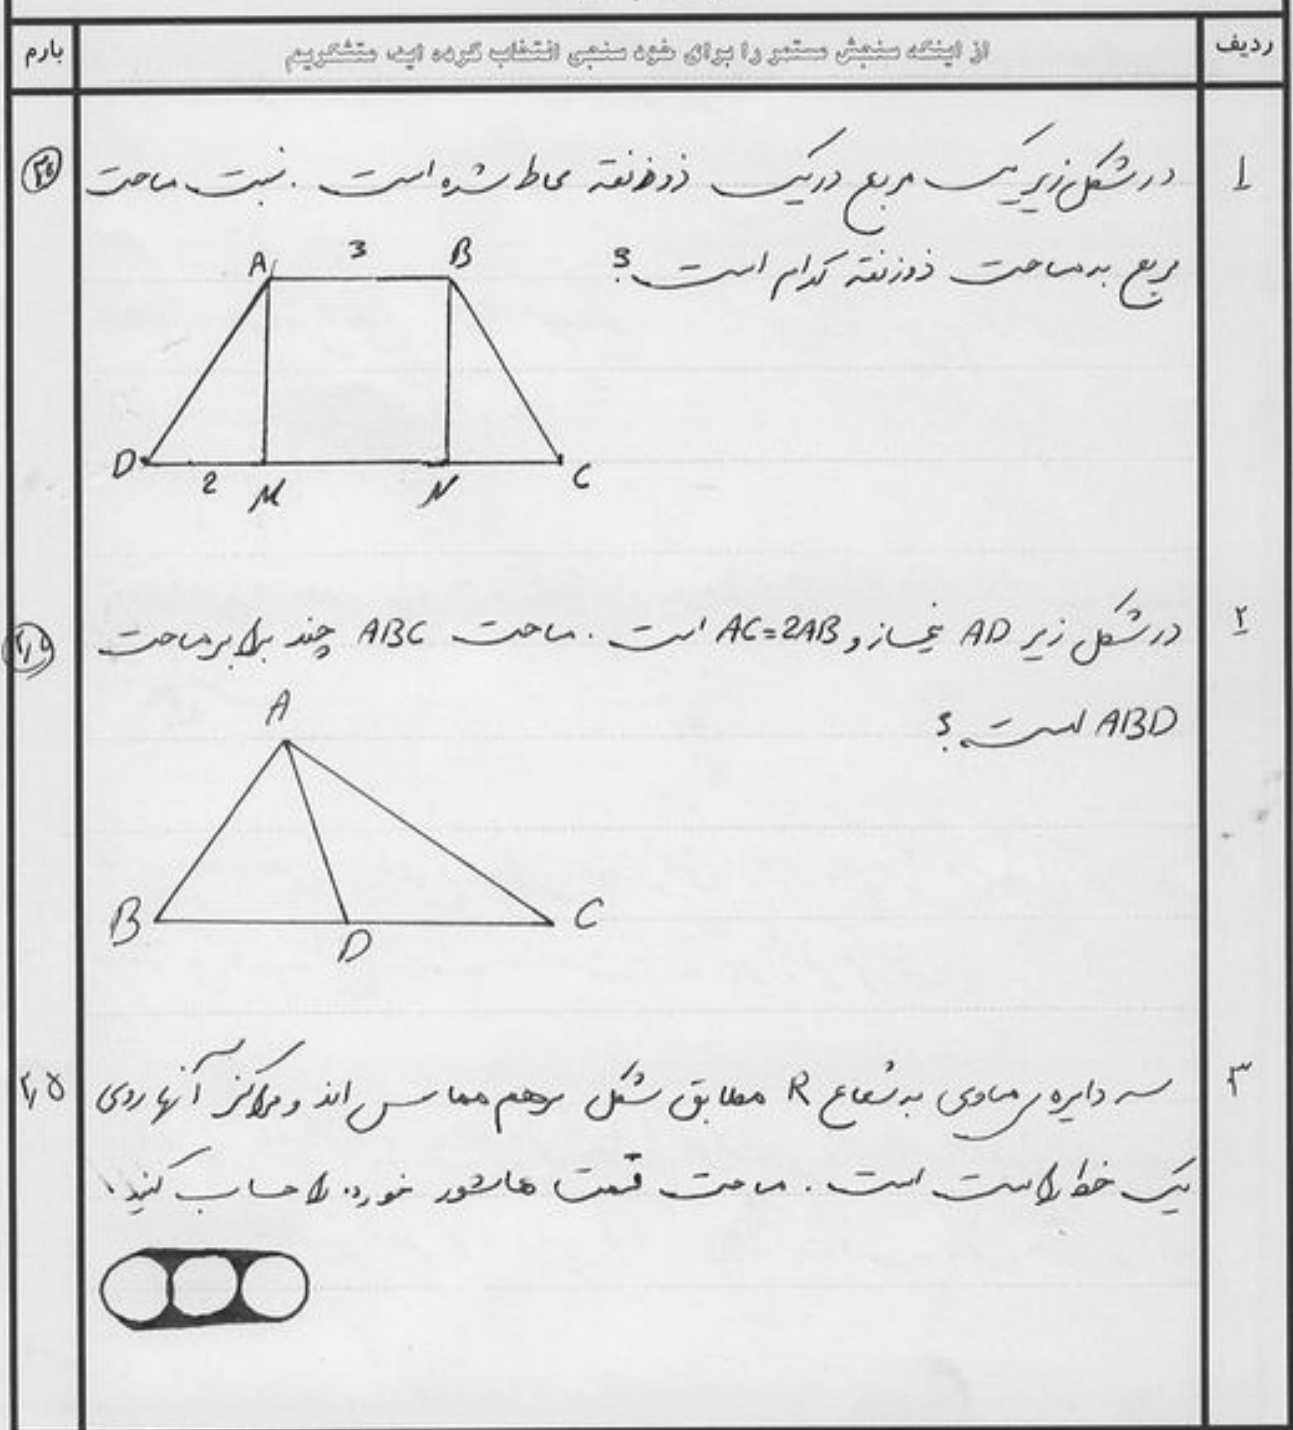 ردیف
از اینکه سنجش مستمر را برای خود سنجی انتخاب کرده اید، متشکریم
بارم
۱
در شکل زیر یک مربع در یک ذوزنقه محاط شده است . نسبت مساحت
مربع به مساحت ذوزنقه کدام است ؟
A 3 B
D 2 M N C
۲
در شکل زیر AD نیمساز و AC=2AB است . مساحت ABC چند برابر مساحت
ABD است ؟
A
B D C
۳
۲٫۵
سه دایره ی مساوی به شعاع R مطابق شکل برهم مماس اند و مراکز آنها روی
یک خط راست است . مساحت قسمت هاشور خورده را حساب کنید .